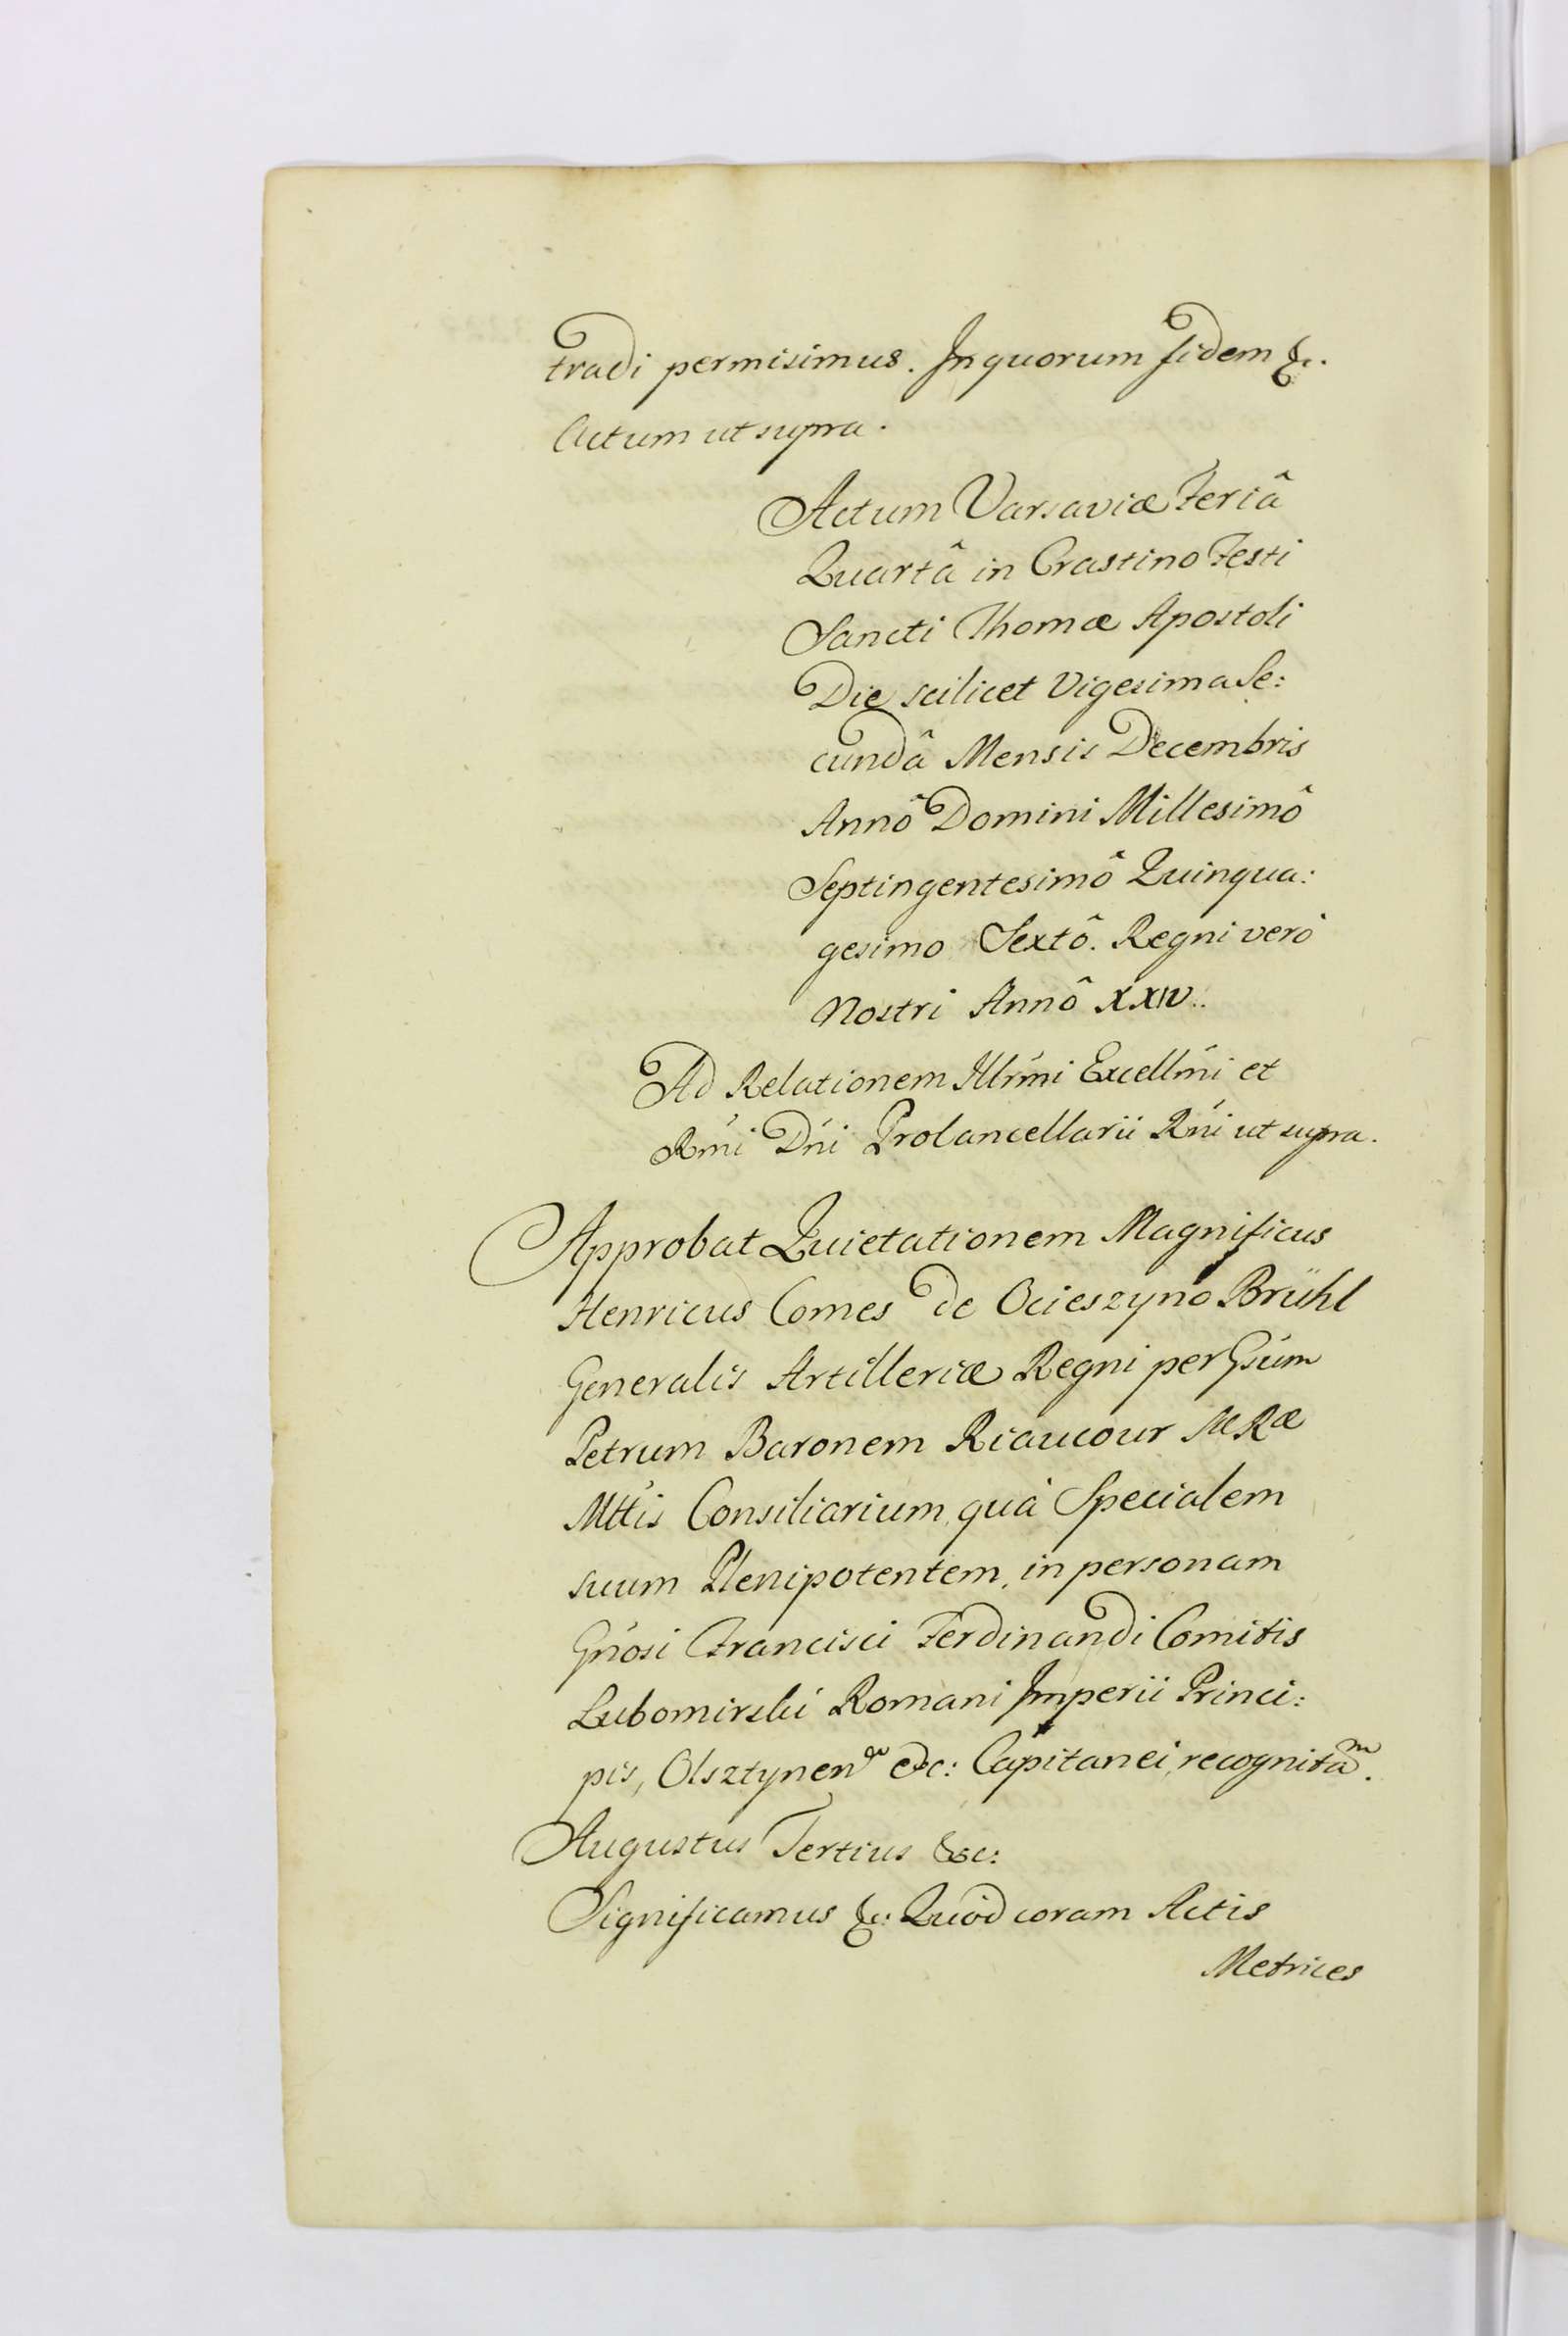 tradi permisimus. In quorum fidem &c.
Actum ut supra.
Actum Varsaviæ Feriâ
Quartâ in Crastino Festi
Sancti Thomæ Apostoli
Die scilicet Vigesima Se:
cundâ Mensis Decembris
Annô Domini Millesimô
Septingentesimô Quinqua:
gesimo Sextô. Regni verò
Nostri Annô XXIV..
Ad Relationem Illrm̃i Excellm̃i et
Rm̃i Dn̄i ProCancellarii Rn̄i ut supra.
Approbat Quietationem Magnificus
Henricus Comes de Ocieszyno Brühl
Generalis Artilleriæ Regni per Gsum
Petrum Baronem Riaucour SRæ
Mttis Consiliarium, quà Specialem
suum Plenipotentem, in personam
Gn̄osi Francisci Ferdinandi Comitis
Lubomirski Romani Imperii Princi:
pis, Olsztynen &c: Capitanei, recognitam.
Augustus Tertius &c:
Significamus &c: Quòd coram Actis
Metrices